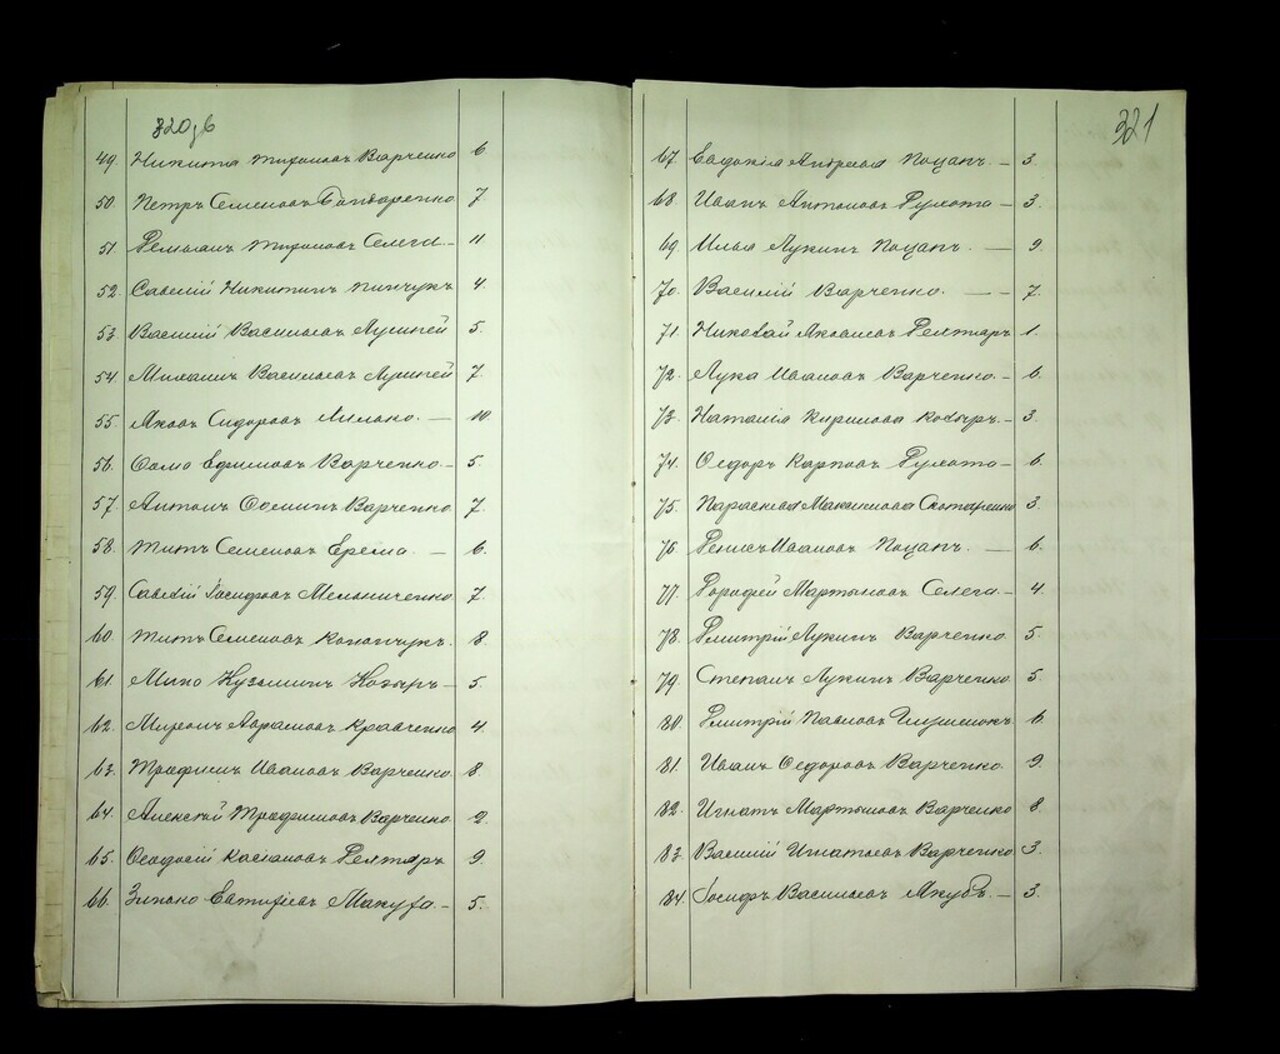 320 зв
49. Никита Тихонов Варченко 6
50. Петръ Семеновъ Бондаренко 7.
51. Демьянъ Тихоновъ Селега. — 11
52. Савелій Никитинъ Пинчукъ 4.
53. Василій Васильевъ Лупшей 5.
54. Михаилъ Васильевъ Лупшей 7.
55. Яковъ Сидоровъ — 10.
56. Фома Ефимовъ Варченко. — 5.
57. Антонъ Фоминъ Варченко 7.
58. Титъ Семеновъ Ерема. — 6.
59. Савелій Іосифовъ Мельниченко 7.
60. Титъ Семеновъ Конончукъ. 8.
61. Кузьминъ Козырь — 5.
62. Миронъ Аврамовъ Кравченко 4.
63. Трофимъ Ивановъ Варченко. 8.
64. Алексѣй Трофимовъ Варченко. 2.
65. Ѳеодосій Касіановъ Дехтярь 9.
66. Зинько Евтифіевъ Макуха. — 5.
321
67. Евдокія Андреева Поцапъ. — 3.
68. Иванъ Антоновъ — 3.
69. Илья Лукинъ Поцапъ. — 9.
70. Василій Варченко. — — 7.
71. Николай Яковлевъ Дехтярь 1.
72. Лука Ивановъ Варченко. — 6.
73. Наталія Кирилова Козырь. — 3.
74. Ѳедоръ Карповъ — 6.
75. Параскева Максимова Скотаренко 3.
76. Денисъ Ивановъ Поцапъ. — 6.
77. Дорофей Мартыновъ Селега. — 4.
78. Дмитрій Лукинъ Варченко. 5.
79. Степанъ Лукинъ Варченко. 5.
80. Дмитрій Павловъ 6.
81. Иванъ Ѳедоровъ Варченко. 9.
82. Игнатъ Мартыновъ Варченко 8.
83. Василій Игнатьевъ Варченко 3.
84. Іосифъ Васильевъ Якубъ. — 3.